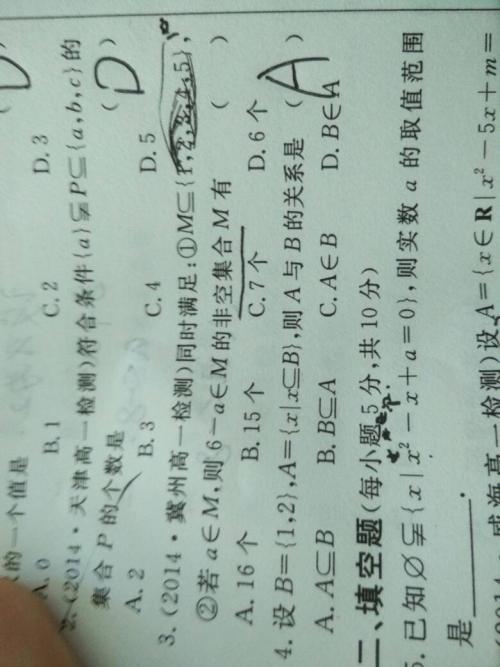 的一个值是 (D)
A. 0 B. 1 C. 2 D. 3
2. (2014·天津高一检测)符合条件{a}⫋P⊆{a,b,c}的
集合 P 的个数是 (D)
A. 2 B. 3 C. 4 D. 5
3. (2014·冀州高一检测)同时满足:①M⊆{1,2,3,4,5},
②若 a∈M,则 6-a∈M 的非空集合 M 有 ( )
A. 16 个 B. 15 个 C. 7 个 D. 6 个
4. 设 B={1,2},A={x|x⊆B},则 A 与 B 的关系是 (A)
A. A⊆B B. B⊆A C. A∈B D. B∈A
二、填空题(每小题 5 分,共 10 分)
5. 已知∅⫋{x|x²-x+a=0},则实数 a 的取值范围
是______.
威海高一检测)设 A={x∈R|x²-5x+m=